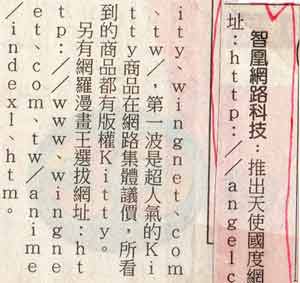 智凰網路科技：推出天使國度網
址：http://angelc
ity、wingnet、com
、tw/，第一波是超人氣的Ki
tty商品在網路集體議價，所看
到的商品都有版權Kitty。
另有網羅漫畫王選拔網址：ht
tp://www、wingne
et、com、tw/anime
/indexl、htm。